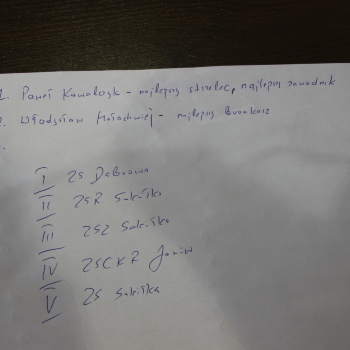 1. Paweł Kowalczyk - najlepszy strzelec, najlepszy zawodnik
2. Władysław - najlepszy bramkarz
I ZS Dąbrowa
II ZSR Sokółka
III ZSZ Sokółka
IV ZSCKR Janów
V ZS Sokółka